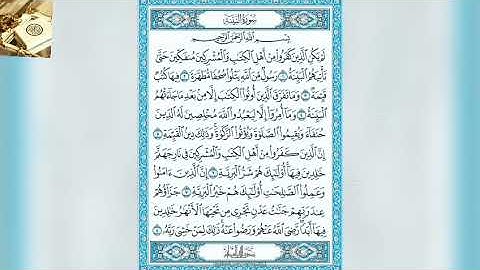 سُورَةُ البَيِّنَةِ
بِسْمِ اللَّهِ الرَّحْمَٰنِ الرَّحِيمِ
لَمْ يَكُنِ الَّذِينَ كَفَرُوا مِنْ أَهْلِ الْكِتَٰبِ وَالْمُشْرِكِينَ مُنفَكِّينَ حَتَّىٰ
تَأْتِيَهُمُ الْبَيِّنَةُ ١ رَسُولٌ مِّنَ اللَّهِ يَتْلُوا صُحُفًا مُّطَهَّرَةً ٢ فِيهَا كُتُبٌ
قَيِّمَةٌ ٣ وَمَا تَفَرَّقَ الَّذِينَ أُوتُوا الْكِتَٰبَ إِلَّا مِنۢ بَعْدِ مَا جَاءَتْهُمُ
الْبَيِّنَةُ ٤ وَمَا أُمِرُوا إِلَّا لِيَعْبُدُوا اللَّهَ مُخْلِصِينَ لَهُ الدِّينَ
حُنَفَاءَ وَيُقِيمُوا الصَّلَوٰةَ وَيُؤْتُوا الزَّكَوٰةَ وَذَٰلِكَ دِينُ الْقَيِّمَةِ ٥
إِنَّ الَّذِينَ كَفَرُوا مِنْ أَهْلِ الْكِتَٰبِ وَالْمُشْرِكِينَ فِي نَارِ جَهَنَّمَ
خَٰلِدِينَ فِيهَا أُولَٰئِكَ هُمْ شَرُّ الْبَرِيَّةِ ٦ إِنَّ الَّذِينَ ءَامَنُوا
وَعَمِلُوا الصَّٰلِحَٰتِ أُولَٰئِكَ هُمْ خَيْرُ الْبَرِيَّةِ ٧ جَزَاؤُهُمْ
عِندَ رَبِّهِمْ جَنَّٰتُ عَدْنٍ تَجْرِي مِن تَحْتِهَا الْأَنْهَٰرُ خَٰلِدِينَ
فِيهَا أَبَدًا رَّضِيَ اللَّهُ عَنْهُمْ وَرَضُوا عَنْهُ ذَٰلِكَ لِمَنْ خَشِيَ رَبَّهُ ٨